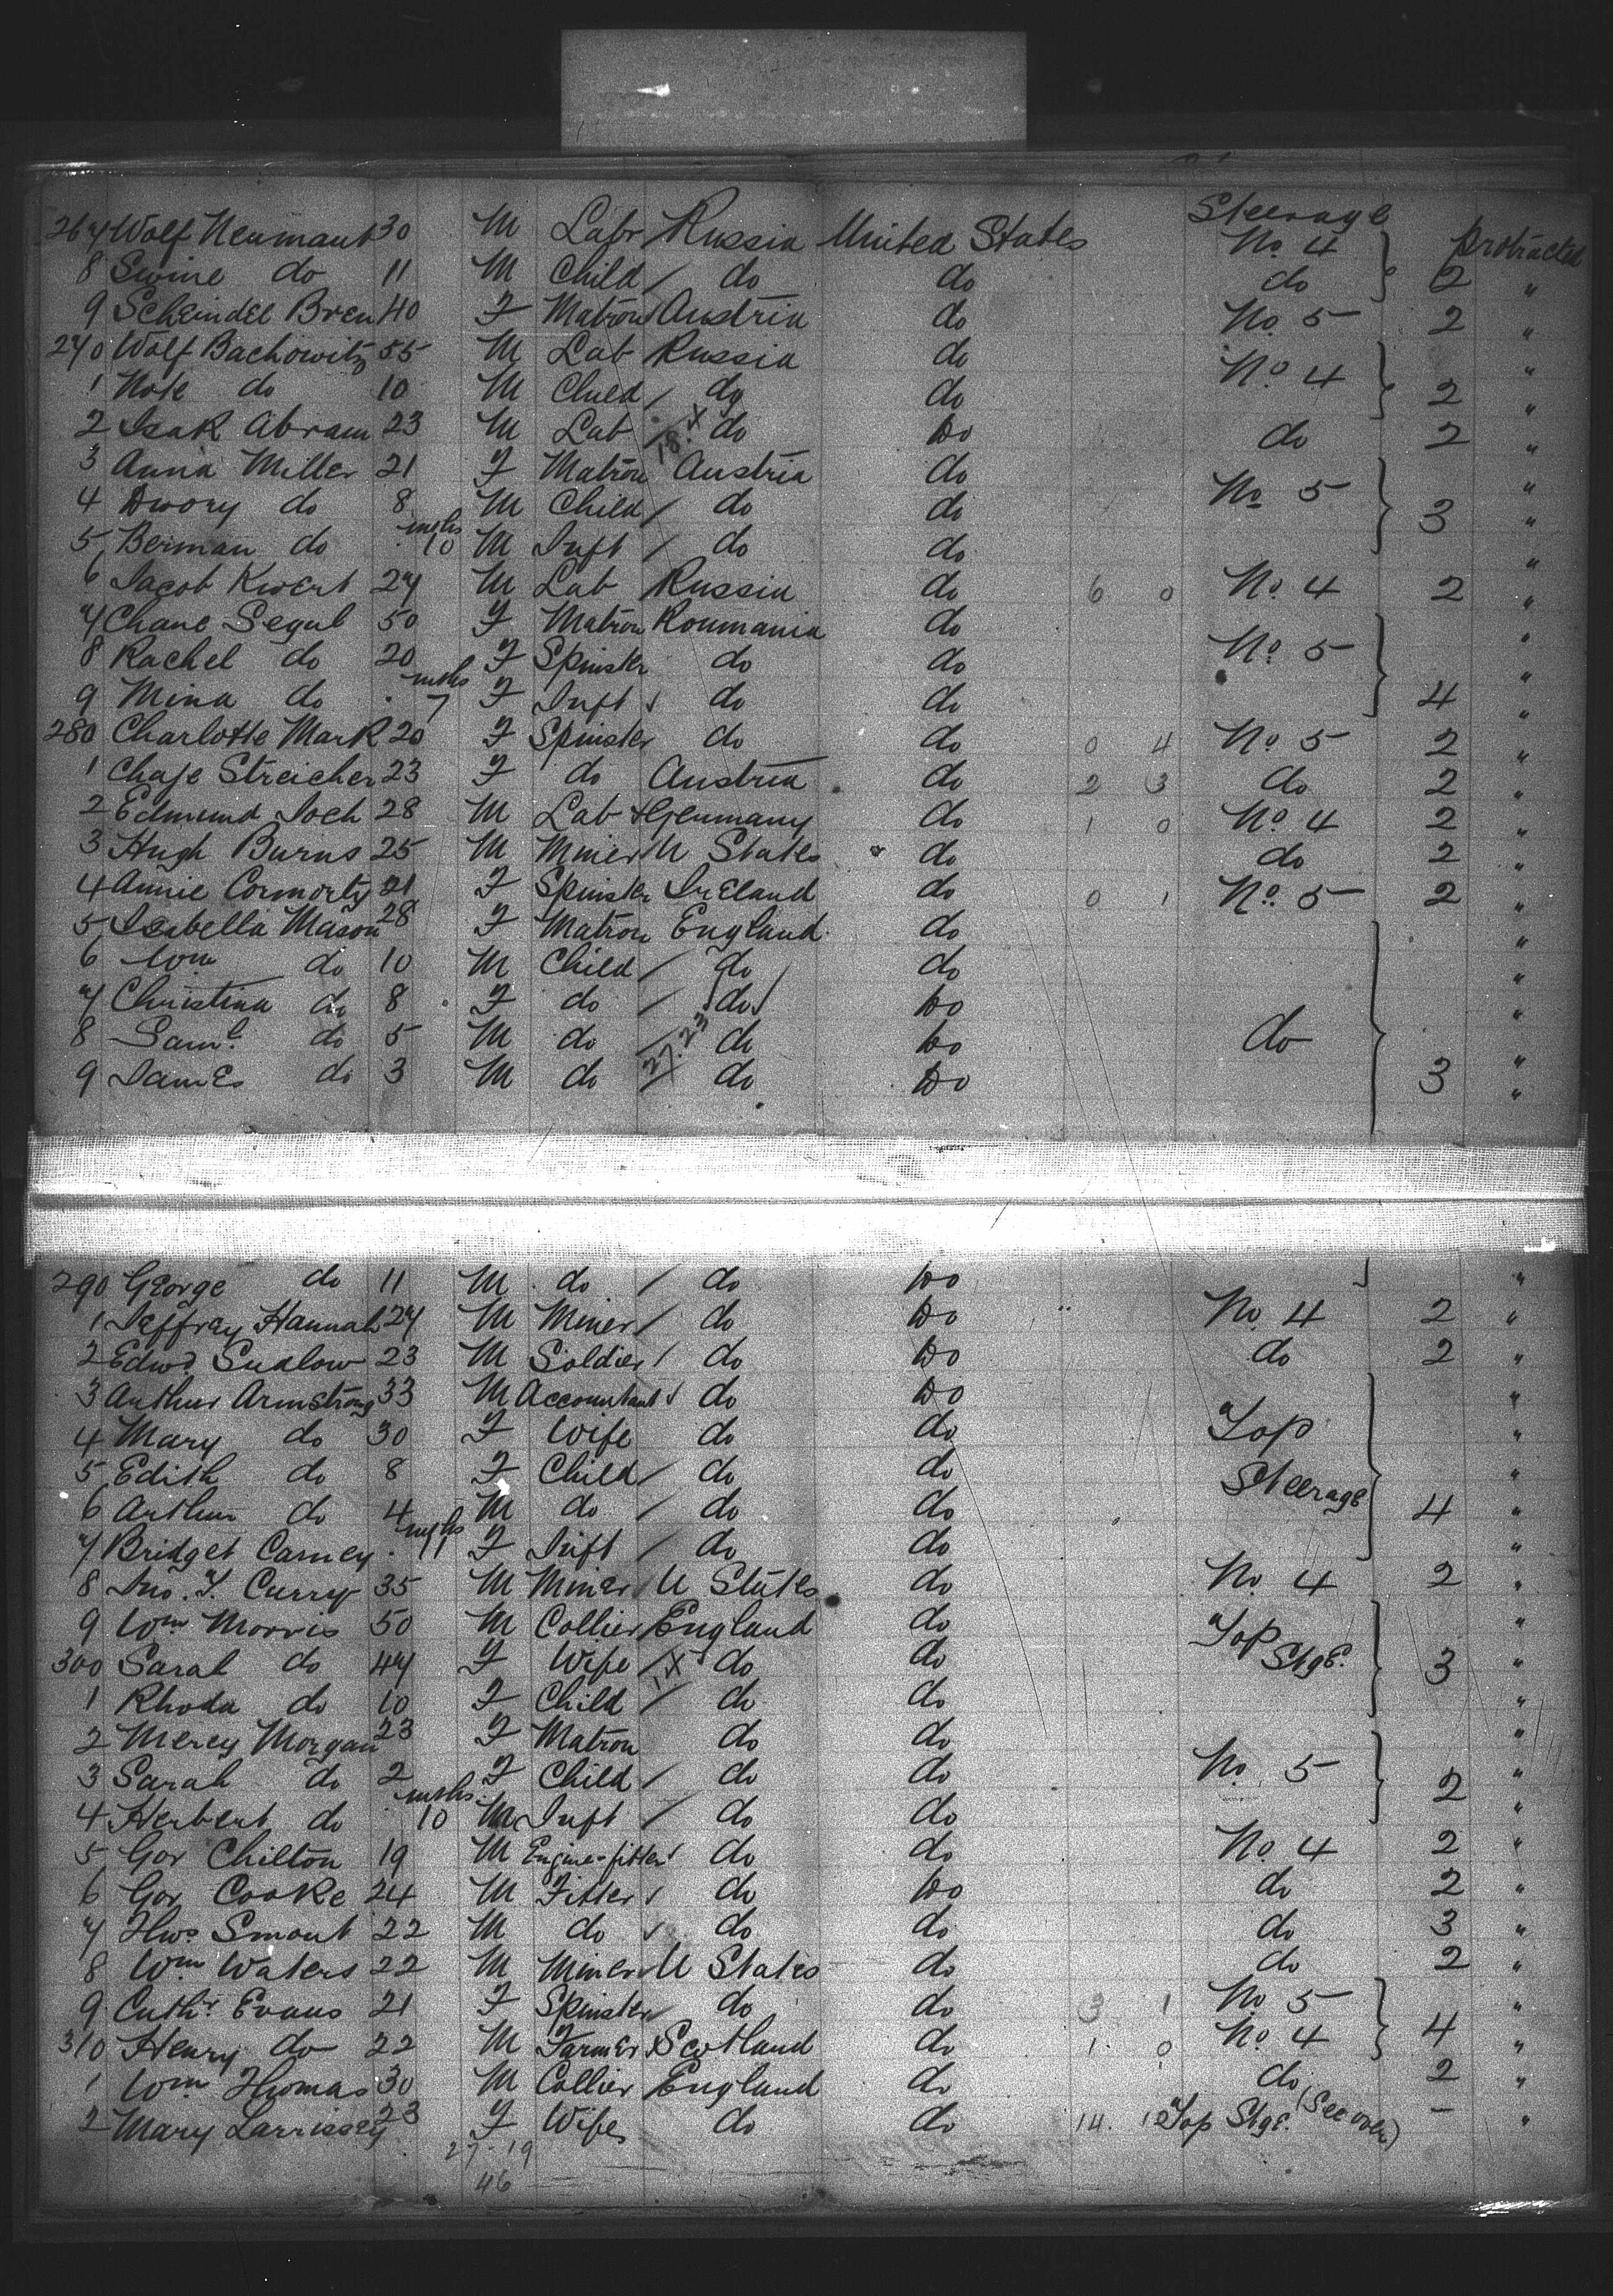 Steerage
267 Wolf Neumann 30 M Labr Russia United States No. 4 protracted
8 Swine do 11 M Child / do do do 2 "
9 Scheindel Bren 40 F Matron Austria do No. 5 2 "
270 Wolf Bachowitz 55 M Lab Russia do No. 4 "
1 Note do 10 M Child / do do 2 "
2 Isak Abram 23 M Lab / do Do do 2 "
3 Anna Miller 21 F Matron Austria do No 5 "
4 Dwory do 8 M Child / do do 3 "
5 Berman do mths 10 M Inft / do do "
6 Jacob Kwert 27 M Lab Russia do 6 0 No. 4 2 "
7 Chane Segul 50 F Matron Roumania do "
8 Rachel do 20 F Spinster do do No. 5 "
9 Mina do mths 7 F Inft do do 4 "
280 Charlotte Mark 20 F Spinster do do 0 4 No. 5 2 "
1 Chaje Streicher 23 F do Austria do 2 3 do 2 "
2 Edmund Joch 28 M Lab Germany do 1 0 No. 4 2 "
3 Hugh Burns 25 M Miner U States do do 2 "
4 Annie Cormorty 21 F Spinster Ireland do 0 1 No. 5 2 "
5 Isabella Mason 28 F Matron England do "
6 Wm do 10 M Child / do do "
7 Christina do 8 F do / do Do "
8 Saml. do 5 M do do Do do "
9 James do 3 M do / do Do 3 "
290 George do 11 M do / do Do "
1 Jeffray Hannah 27 M Miner / do Do No. 4 2 "
2 Edwd. Sudlow 23 M Soldier / do Do do 2 "
3 Arthur Armstrong 33 M Accountant do Do "
4 Mary do 30 F Wife do do Top "
5 Edith do 8 F Child / do do Steerage "
6 Arthur do 4 M do / do do 4 "
7 Bridget Carney mths 11 F Inft / do do "
8 Jno. T. Curry 35 M Miner U States do No. 4 2 "
9 Wm Morris 50 M Collier England do Top "
300 Sarah do 47 F Wife do do Stge. 3 "
1 Rhoda do 10 F Child / do do "
2 Mercy Morgan 23 F Matron do do "
3 Sarah do 2 F Child / do do No. 5 2 "
4 Herbert do mths 10 M Inft / do do "
5 Geo Chilton 19 M Engine-fitter do do No. 4 2 "
6 Geo. Cooke 24 M Fitter do Do do 2 "
7 Smout 22 M do do do do 3 "
8 Wm Waters 22 M Miner U States do do 2 "
9 Cuthr. Evans 21 F Spinster do do 3 1 No 5 "
310 Henry do 22 M Farmer Scotland do 1 0 No. 4 4 "
1 Wm Thomas 30 M Collier England do do 2 "
2 Mary Larrissey 23 F Wife do do 14. Top Stge. (See over) - "
27-19
46